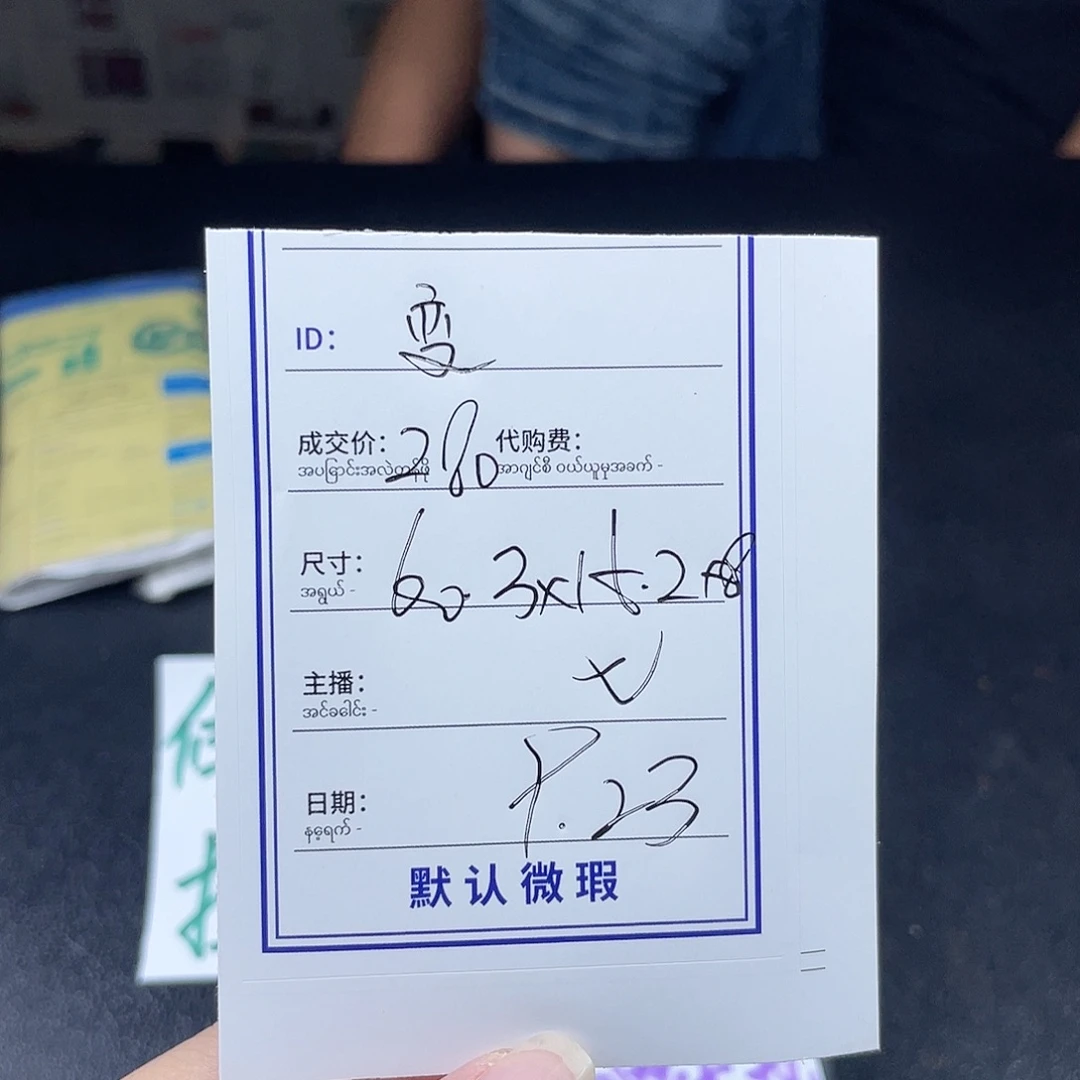 ID: 变
成交价: 280 代购费:
အပြောင်းအလဲတန်ဖိုး အာဂျင်စီ ဝယ်ယူမှုအခက် -
尺寸: 60.3x15.2x8
အရွယ် -
主播:
အင်ခေါင်း -
日期: 9.23
နေ့ရက် -
默认微瑕